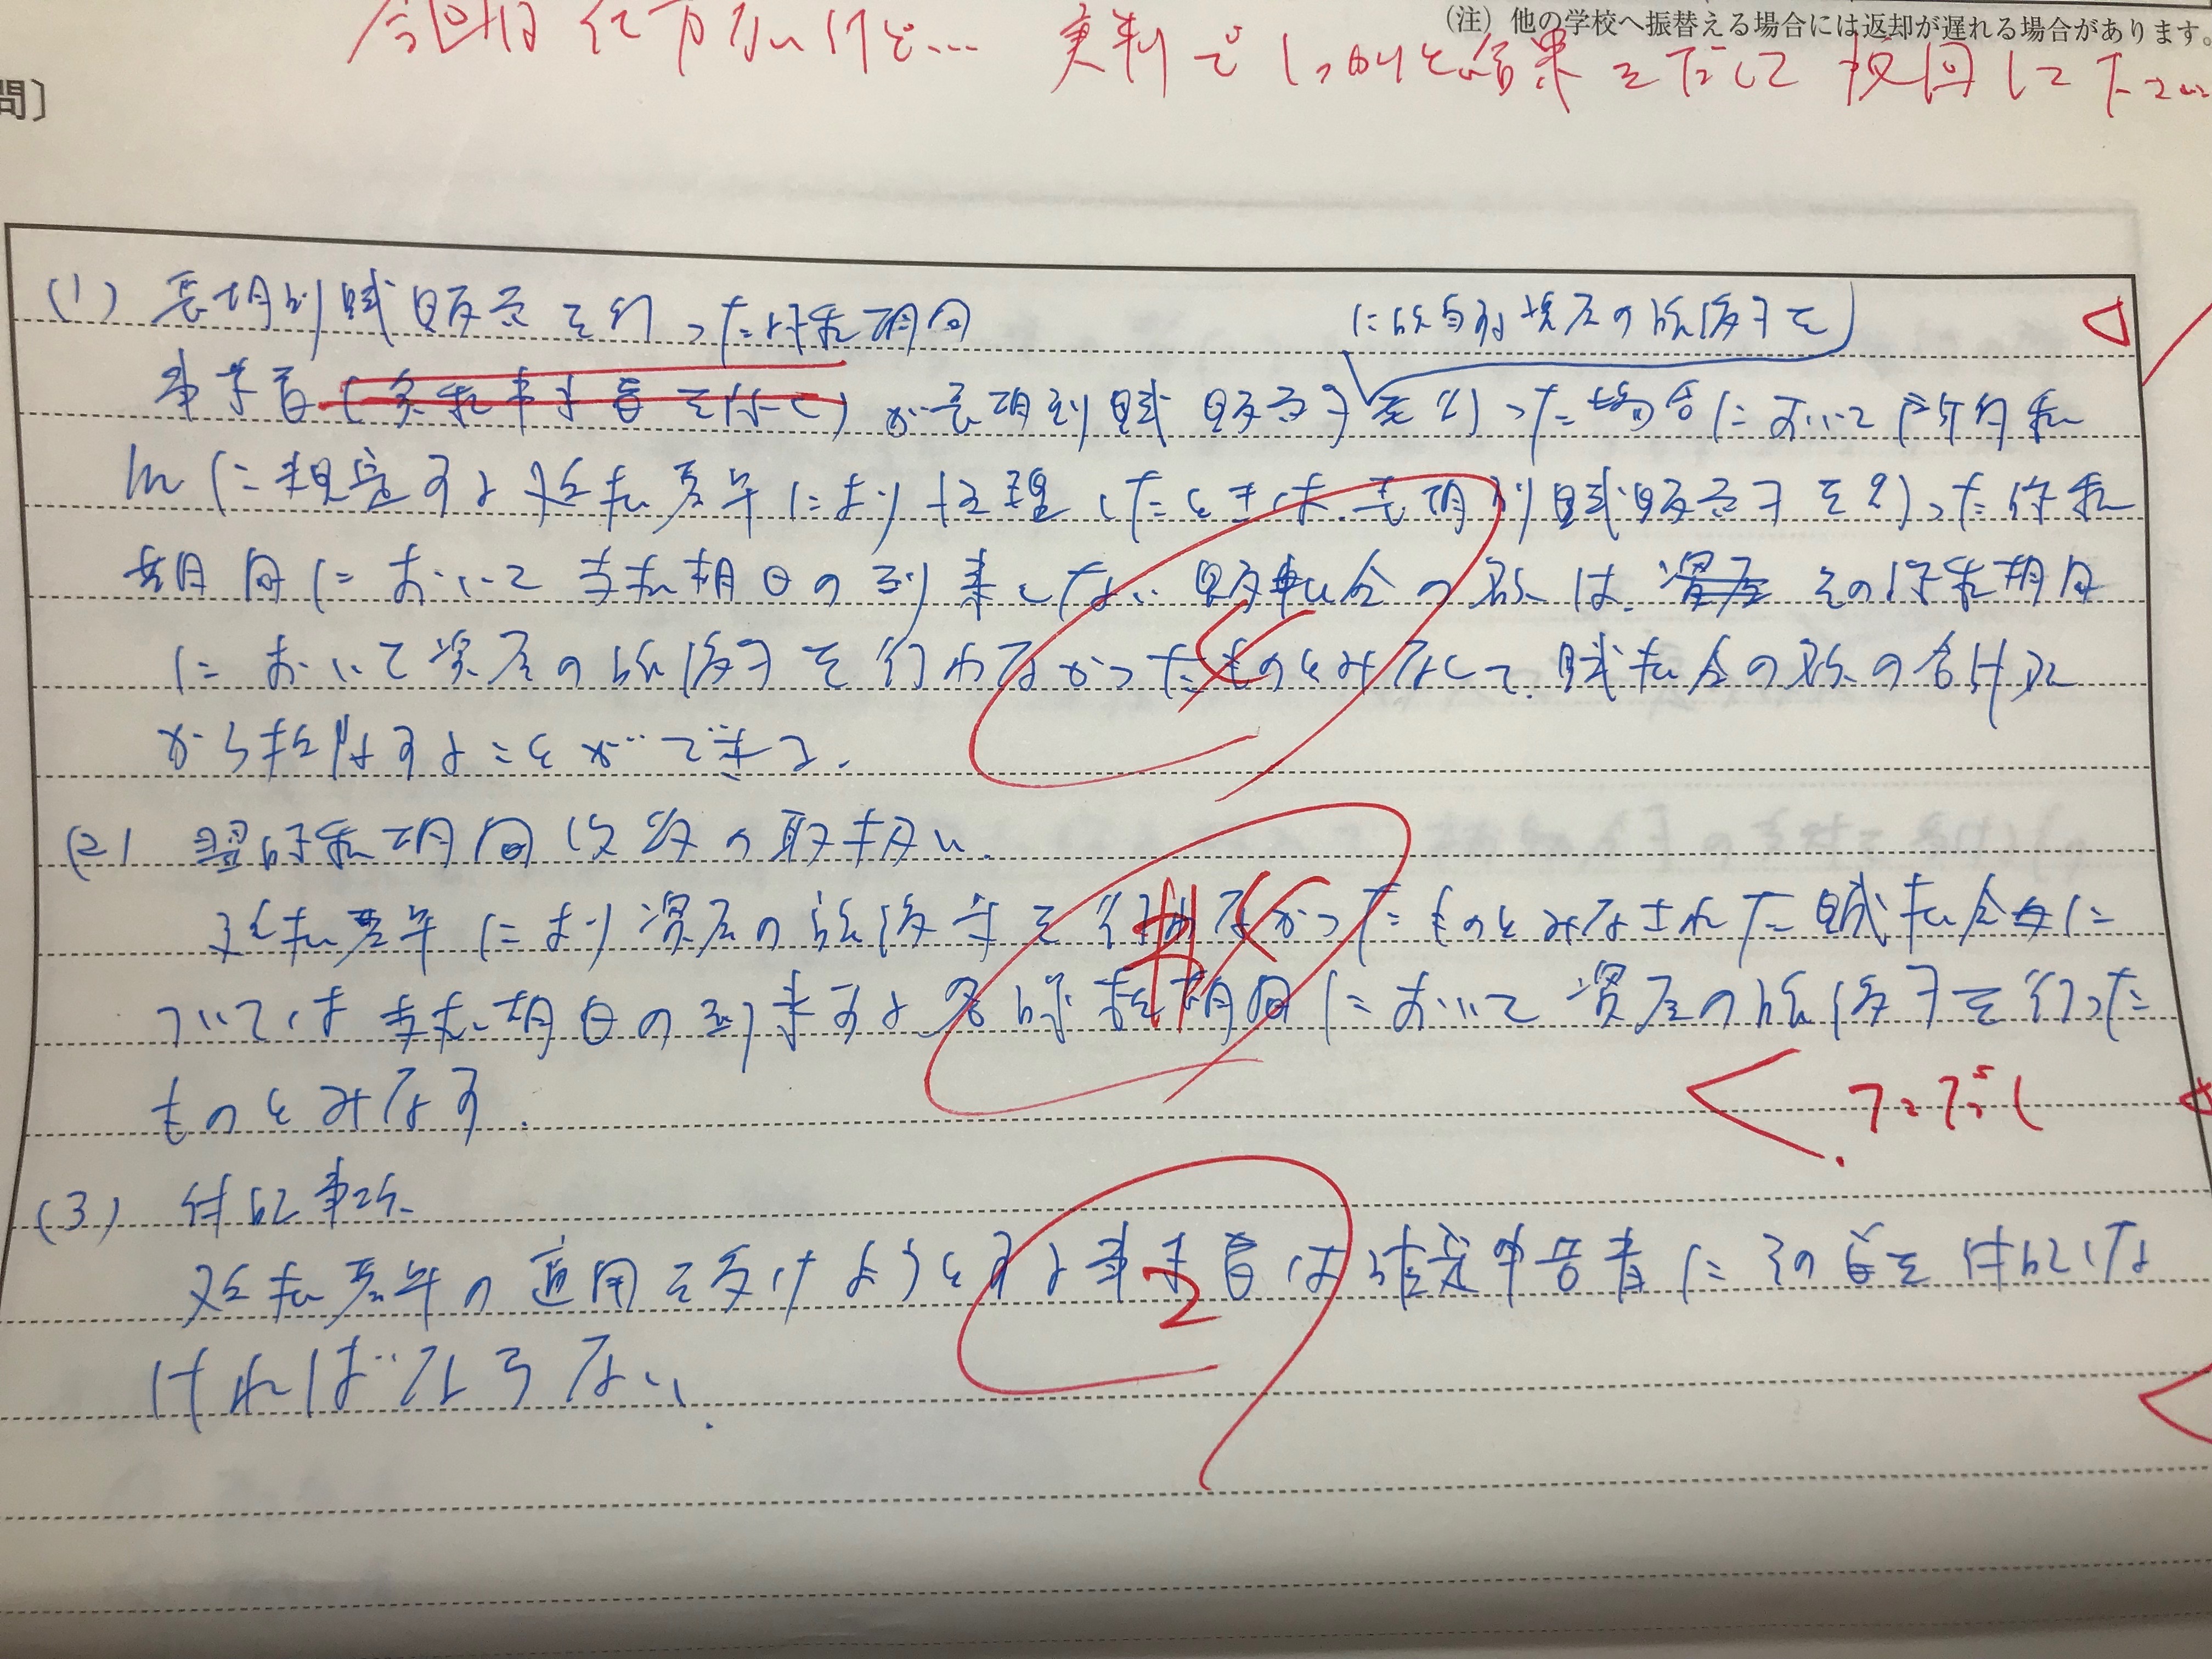 (注) 他の学校へ振替える場合には返却が遅れる場合があります。
今回は仕方ないけど… 実判でしっかりと結果をだして挽回して下さい
問〕
(1) 長期割賦販売を行った課税期間
に係る資産の譲渡等を
事業者(免税事業者を除く)が長期割賦販売等を行った場合において所得税
法に規定する延払基準により経理したときは、長期割賦販売等を行った課税
期間において支払期日の到来しない賦払金の額は、資産 その課税期間
において資産の譲渡等を行わなかったものとみなして、賦払金の額の合計額
から控除することができる。
5
(2) 翌課税期間以後の取扱い
延払基準により資産の譲渡等を行わなかったものとみなされた賦払金に
ついては支払期日の到来する各課税期間において資産の譲渡等を行った
ものとみなす。
(3) 付記事項
延払基準の適用を受けようとする事業者は確定申告書にその旨を付記しな
ければならない。
2